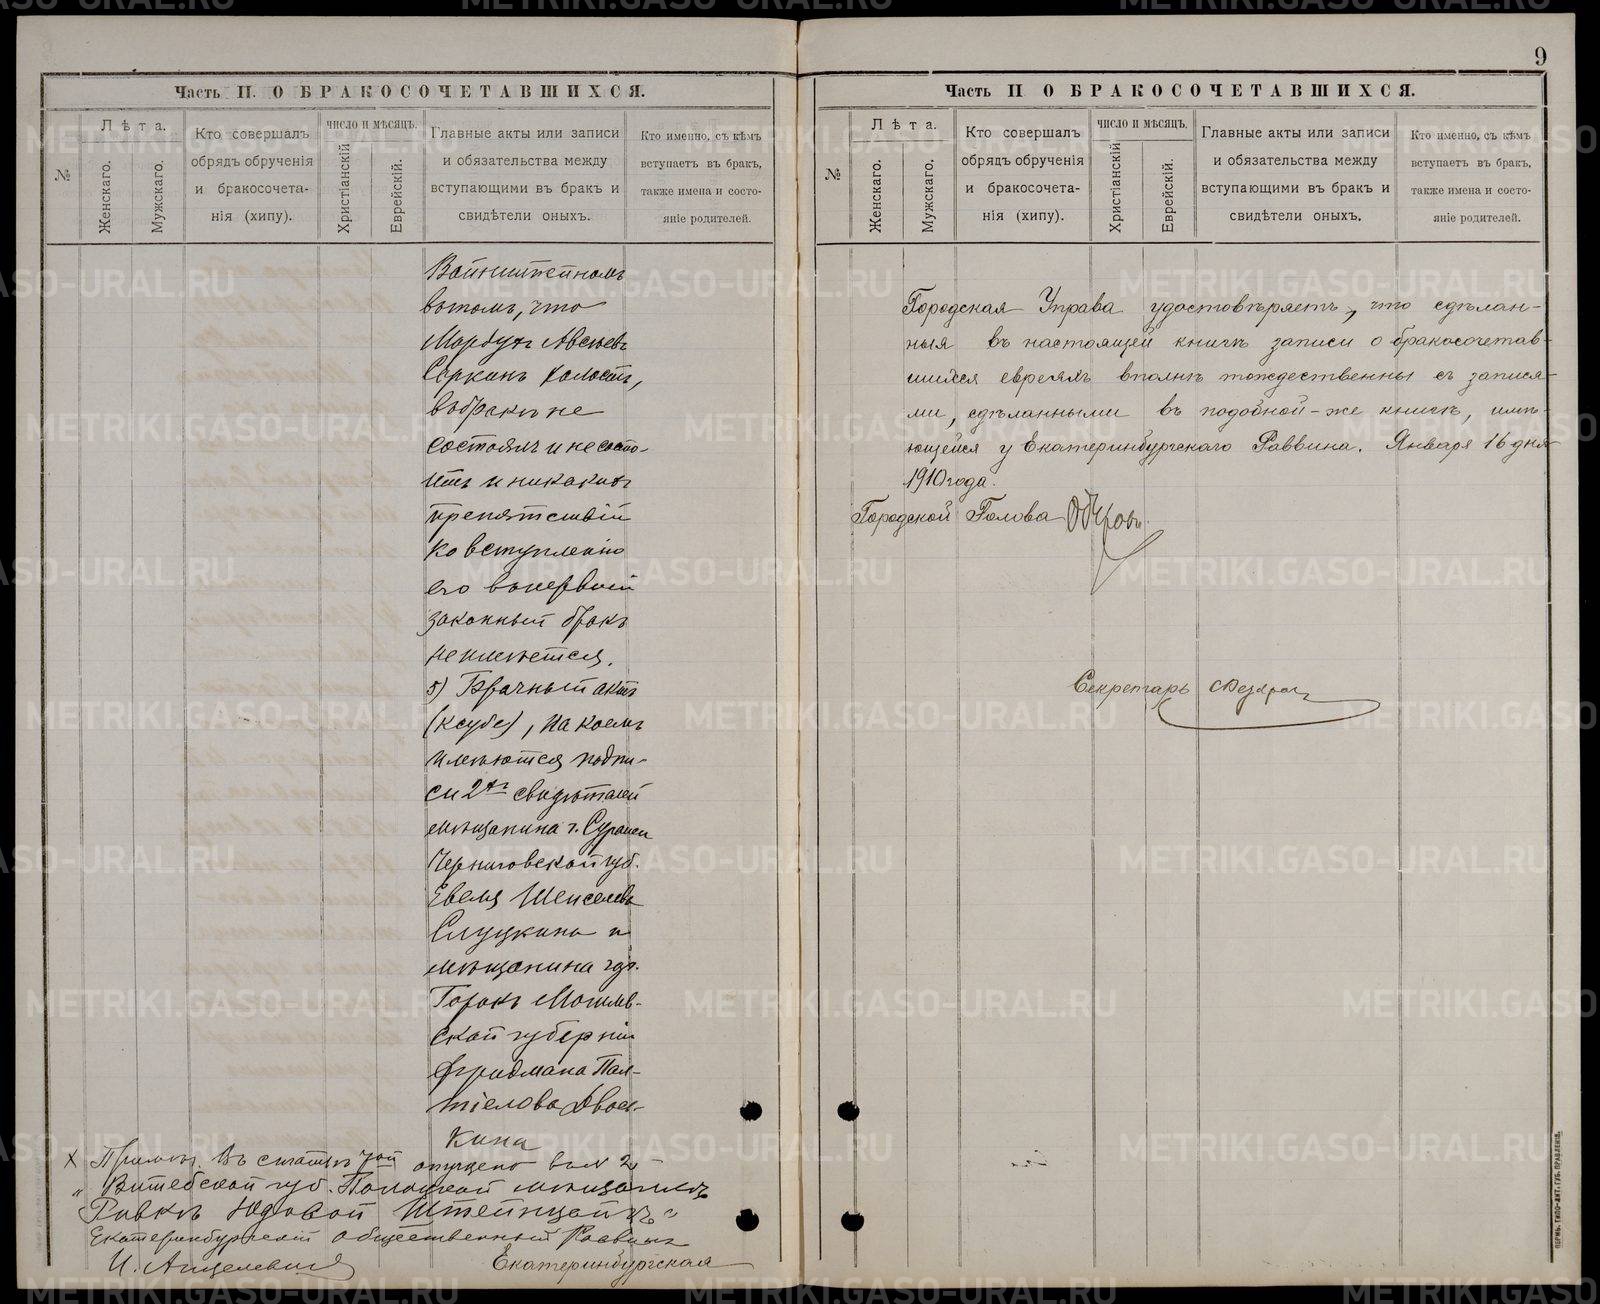 9
Часть II. О БРАКОСОЧЕТАВШИХСЯ.
№
Лѣта.
Женскаго.
Мужскаго.
Кто совершалъ
обрядъ обрученія
и бракосочета-
нія (хипу).
ЧИСЛО И МѢСЯЦЪ.
Христіанскій
Еврейскій.
Главные акты или записи
и обязательства между
вступающими въ бракъ и
свидѣтели оныхъ.
Кто именно, съ кѣмъ
вступаетъ въ бракъ,
также имена и состо-
яніе родителей.
Вайнштейномъ
въ томъ, что
Мордухъ Авсѣевъ
Соркинъ холостъ,
въ бракѣ не
состоялъ и не состо-
итъ и никакихъ
препятствій
ко вступленію
его въ первый
законный бракъ
не имѣется.
5) Брачный актъ
(ксубе), на коемъ
имѣются подпи-
си 2хъ свидѣтелей
мѣщанина г. Суража
Черниговской губ.
Евеля Шепселева
Слуцкина и
мѣщанина гор.
Горокъ Могилев-
ской губерніи
Фридмана Пал-
тіелова Двос-
кина
X Примѣч. Въ статьѣ опущено
"Витебской губ. Полоцкой мѣщанкѣ
Ривкѣ Юдовой
Екатеринбургскій Общественный Раввинъ
Екатеринбургская
Часть II О БРАКОСОЧЕТАВШИХСЯ.
№
Лѣта.
Женскаго.
Мужскаго.
Кто совершалъ
обрядъ обрученія
и бракосочета-
нія (хипу).
ЧИСЛО И МѢСЯЦЪ.
Христіанскій
Еврейскій.
Главные акты или записи
и обязательства между
вступающими въ бракъ и
свидѣтели оныхъ.
Кто именно, съ кѣмъ
вступаетъ въ бракъ,
также имена и состо-
яніе родителей.
Городская Управа удостовѣряетъ, что сдѣлан-
ныя въ настоящей книгѣ записи о бракосочетав-
шихся евреяхъ вполнѣ тождественны съ запися-
ми, сдѣланными въ подобной-же книгѣ, имѣ-
ющейся у Екатеринбургскаго Раввина. Января 16 дня
1910 года.
Городской Голова
Секретарь
ПЕРМЬ. ТИПО-ЛИТ. ГУБ. ПРАВЛЕНІЯ.
METRIKI.GASO-URAL.RU